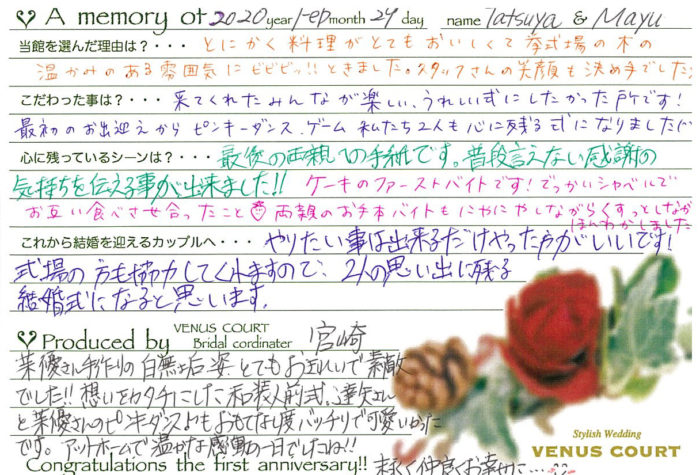 A memory of 2020 year Feb month 24 day name Tatsuya & Mayu
当館を選んだ理由は？・・・とにかく料理がとてもおいしくて挙式場の木の
温かみのある雰囲気にビビビッ!!ときました。スタッフさんの笑顔も決め手でした!
こだわった事は？・・・来てくれたみんなが楽しい、うれしい式にしたかった所です！
最初のお出迎えからピンキーダンス、ゲーム 私たち2人も心に残る式になりました
心に残っているシーンは？・・・最後の両親への手紙です。普段言えない感謝の
気持ちを伝える事が出来ました!! ケーキのファーストバイトです！でっかいシャベルで
お互い食べさせ合ったこと 両親のお手本バイトもにやにやしながらくすっとしながら
ほんわかしました
これから結婚を迎えるカップルへ・・・やりたい事は出来るだけやった方がいいです！
式場の方も協力してくれますので、2人の思い出に残る
結婚式になると思います。
Produced by VENUS COURT Bridal cordinater 宮崎
茉優さん手作りの白無垢姿、とてもお正れいで素敵
でした!! 想いをカタチにした和装人前式、達矢さん
と茉優さんのピンキーダンスよもおもてなし度バッチリで可愛いかった
です。アットホームで温かな感動の一日でしたね!!
Congratulations the first anniversary!! 末永く仲良くお幸せに…
Stylish Wedding
VENUS COURT